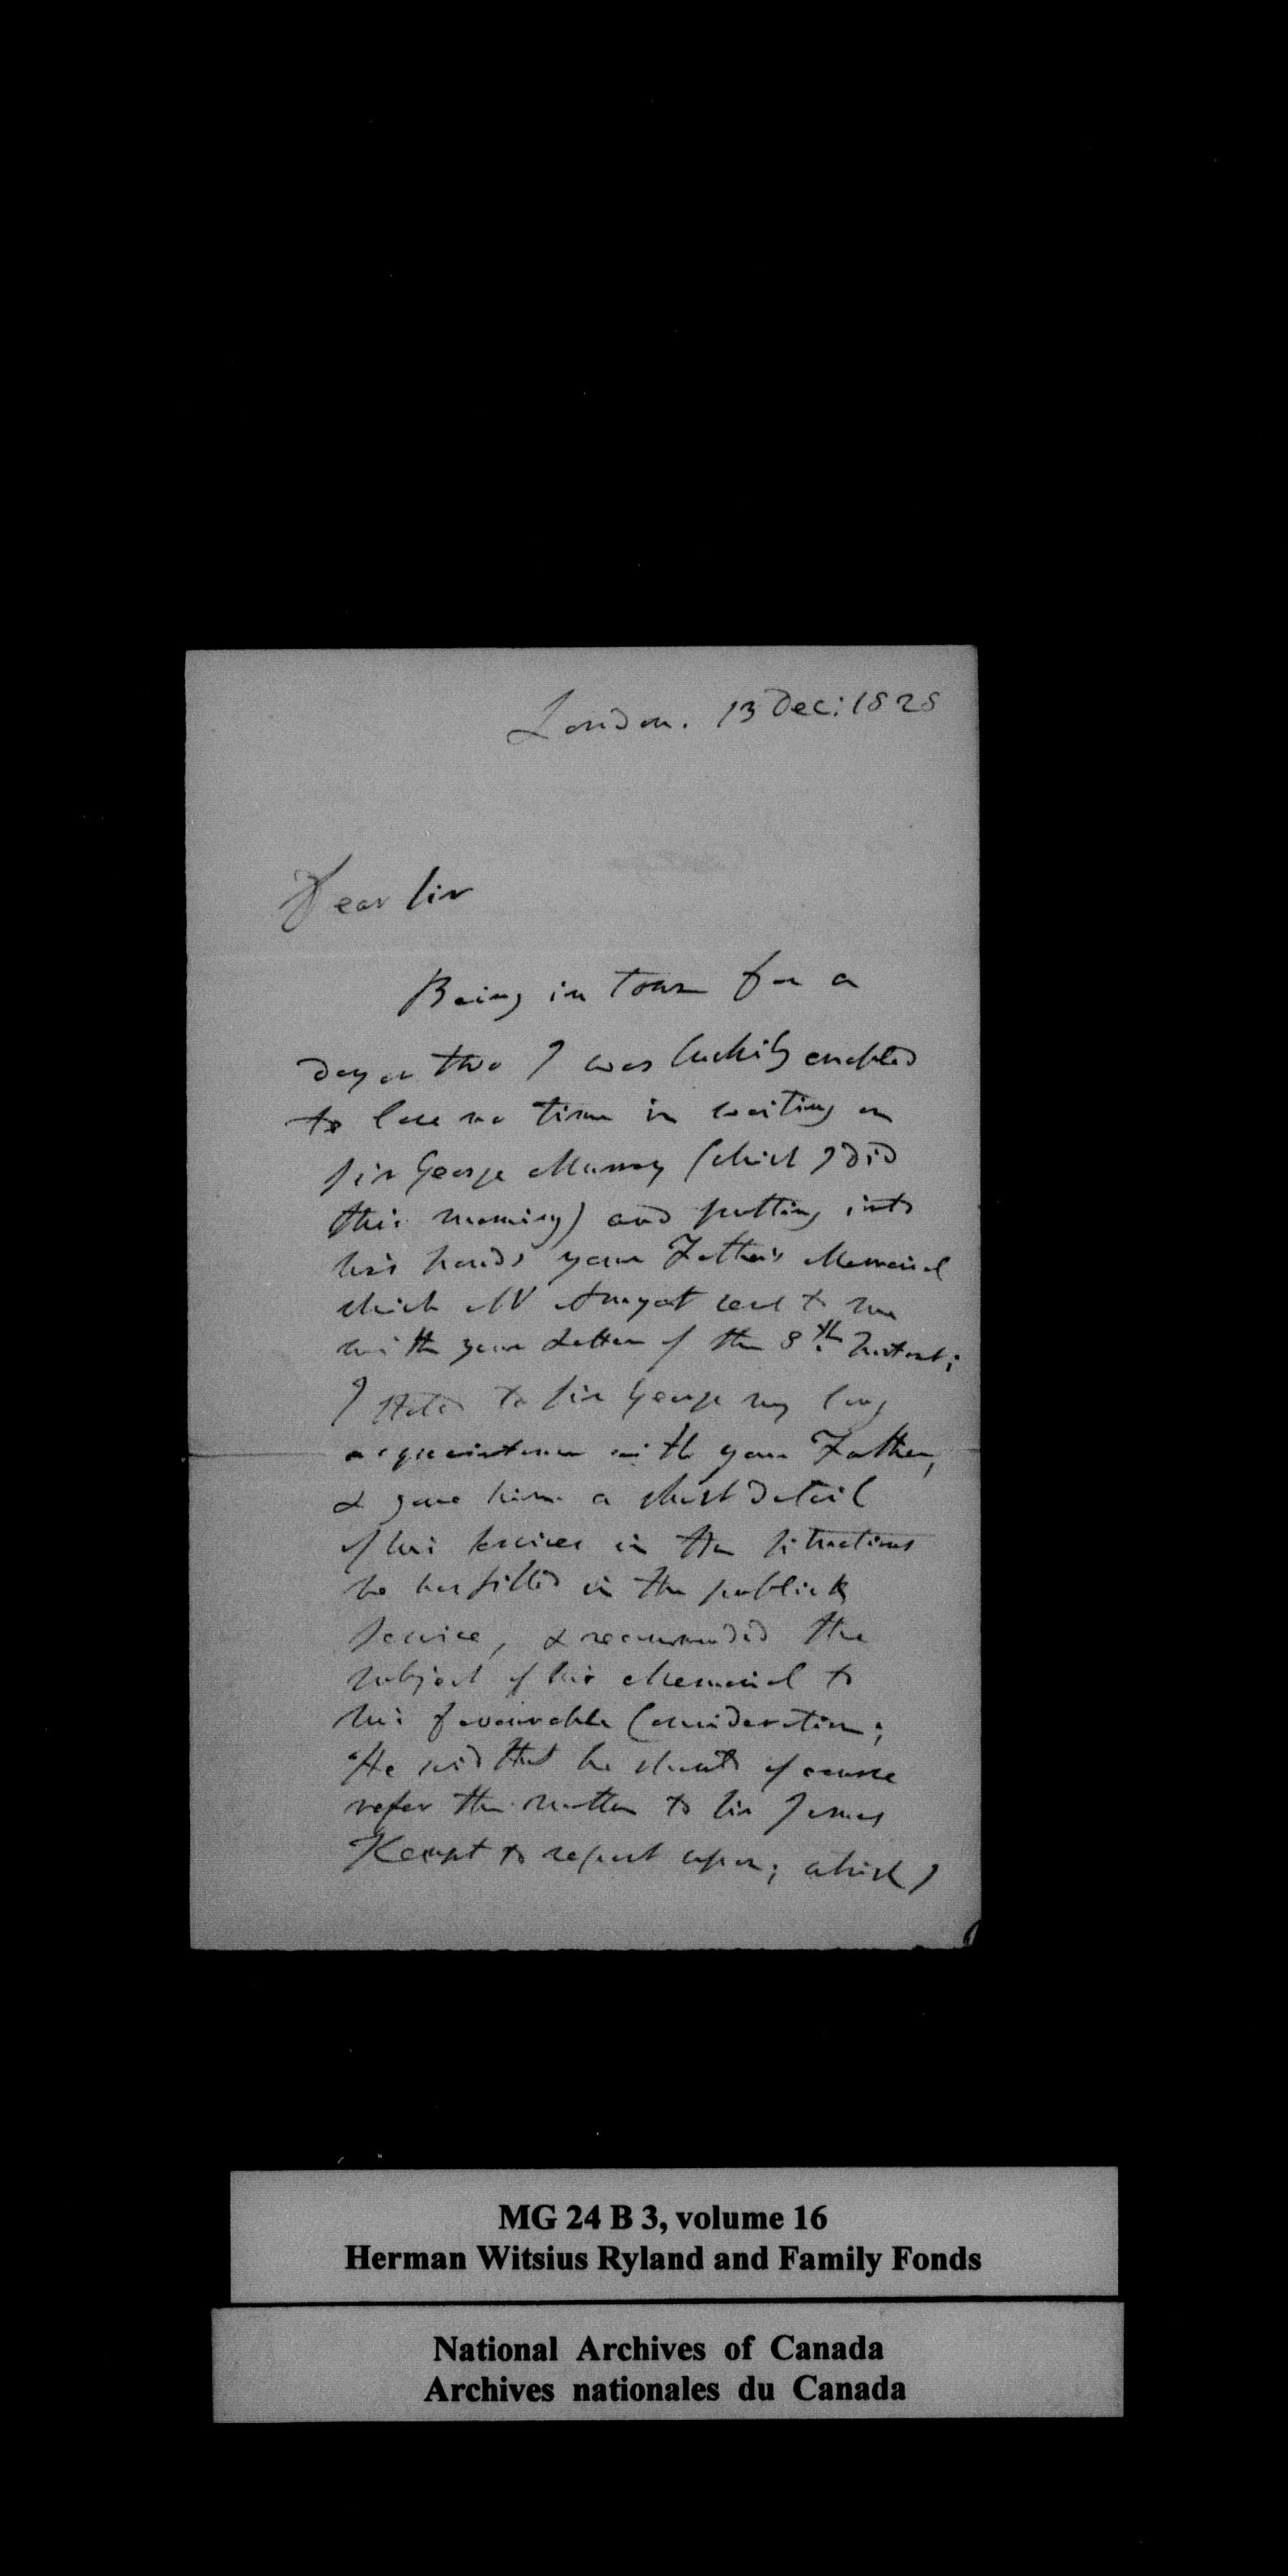 London. 13 Dec: 1828
Dear Sir
Being in Town for a
day or two I was luckily enabled
to lose no time in waiting on
Sir George Murray (which I did
this morning) and putting into
his hands your Father's Memorial
which Mr Amyot sent to me
with your Letter of the 8th Instant;
I stated to Sir George my long
acquaintance with your Father,
& gave him a short detail
of his services in the situations
he has filled in the publick
Service, & recommended the
subject of his Memorial to
his favourable Consideration;
He said that he should of course
refer the matter to Sir James
Kempt to report upon; which I
MG 24 B 3, volume 16
Herman Witsius Ryland and Family Fonds
National Archives of Canada
Archives nationales du Canada